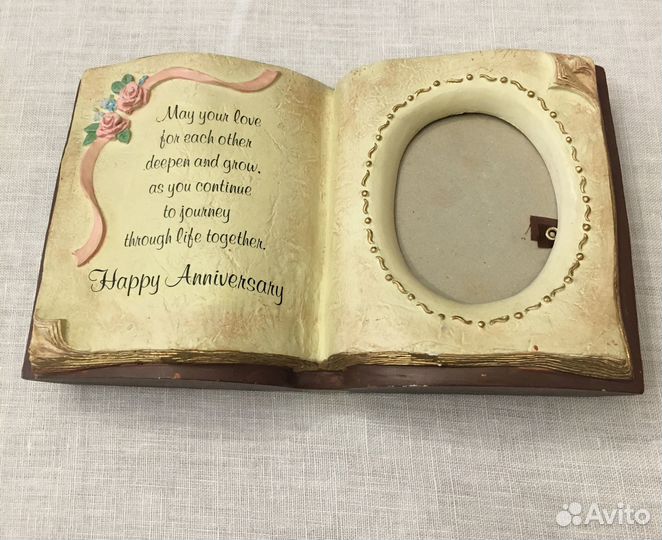 May your love
for each other
deepen and grow,
as you continue
to journey
through life together.
Happy Anniversary
Avito